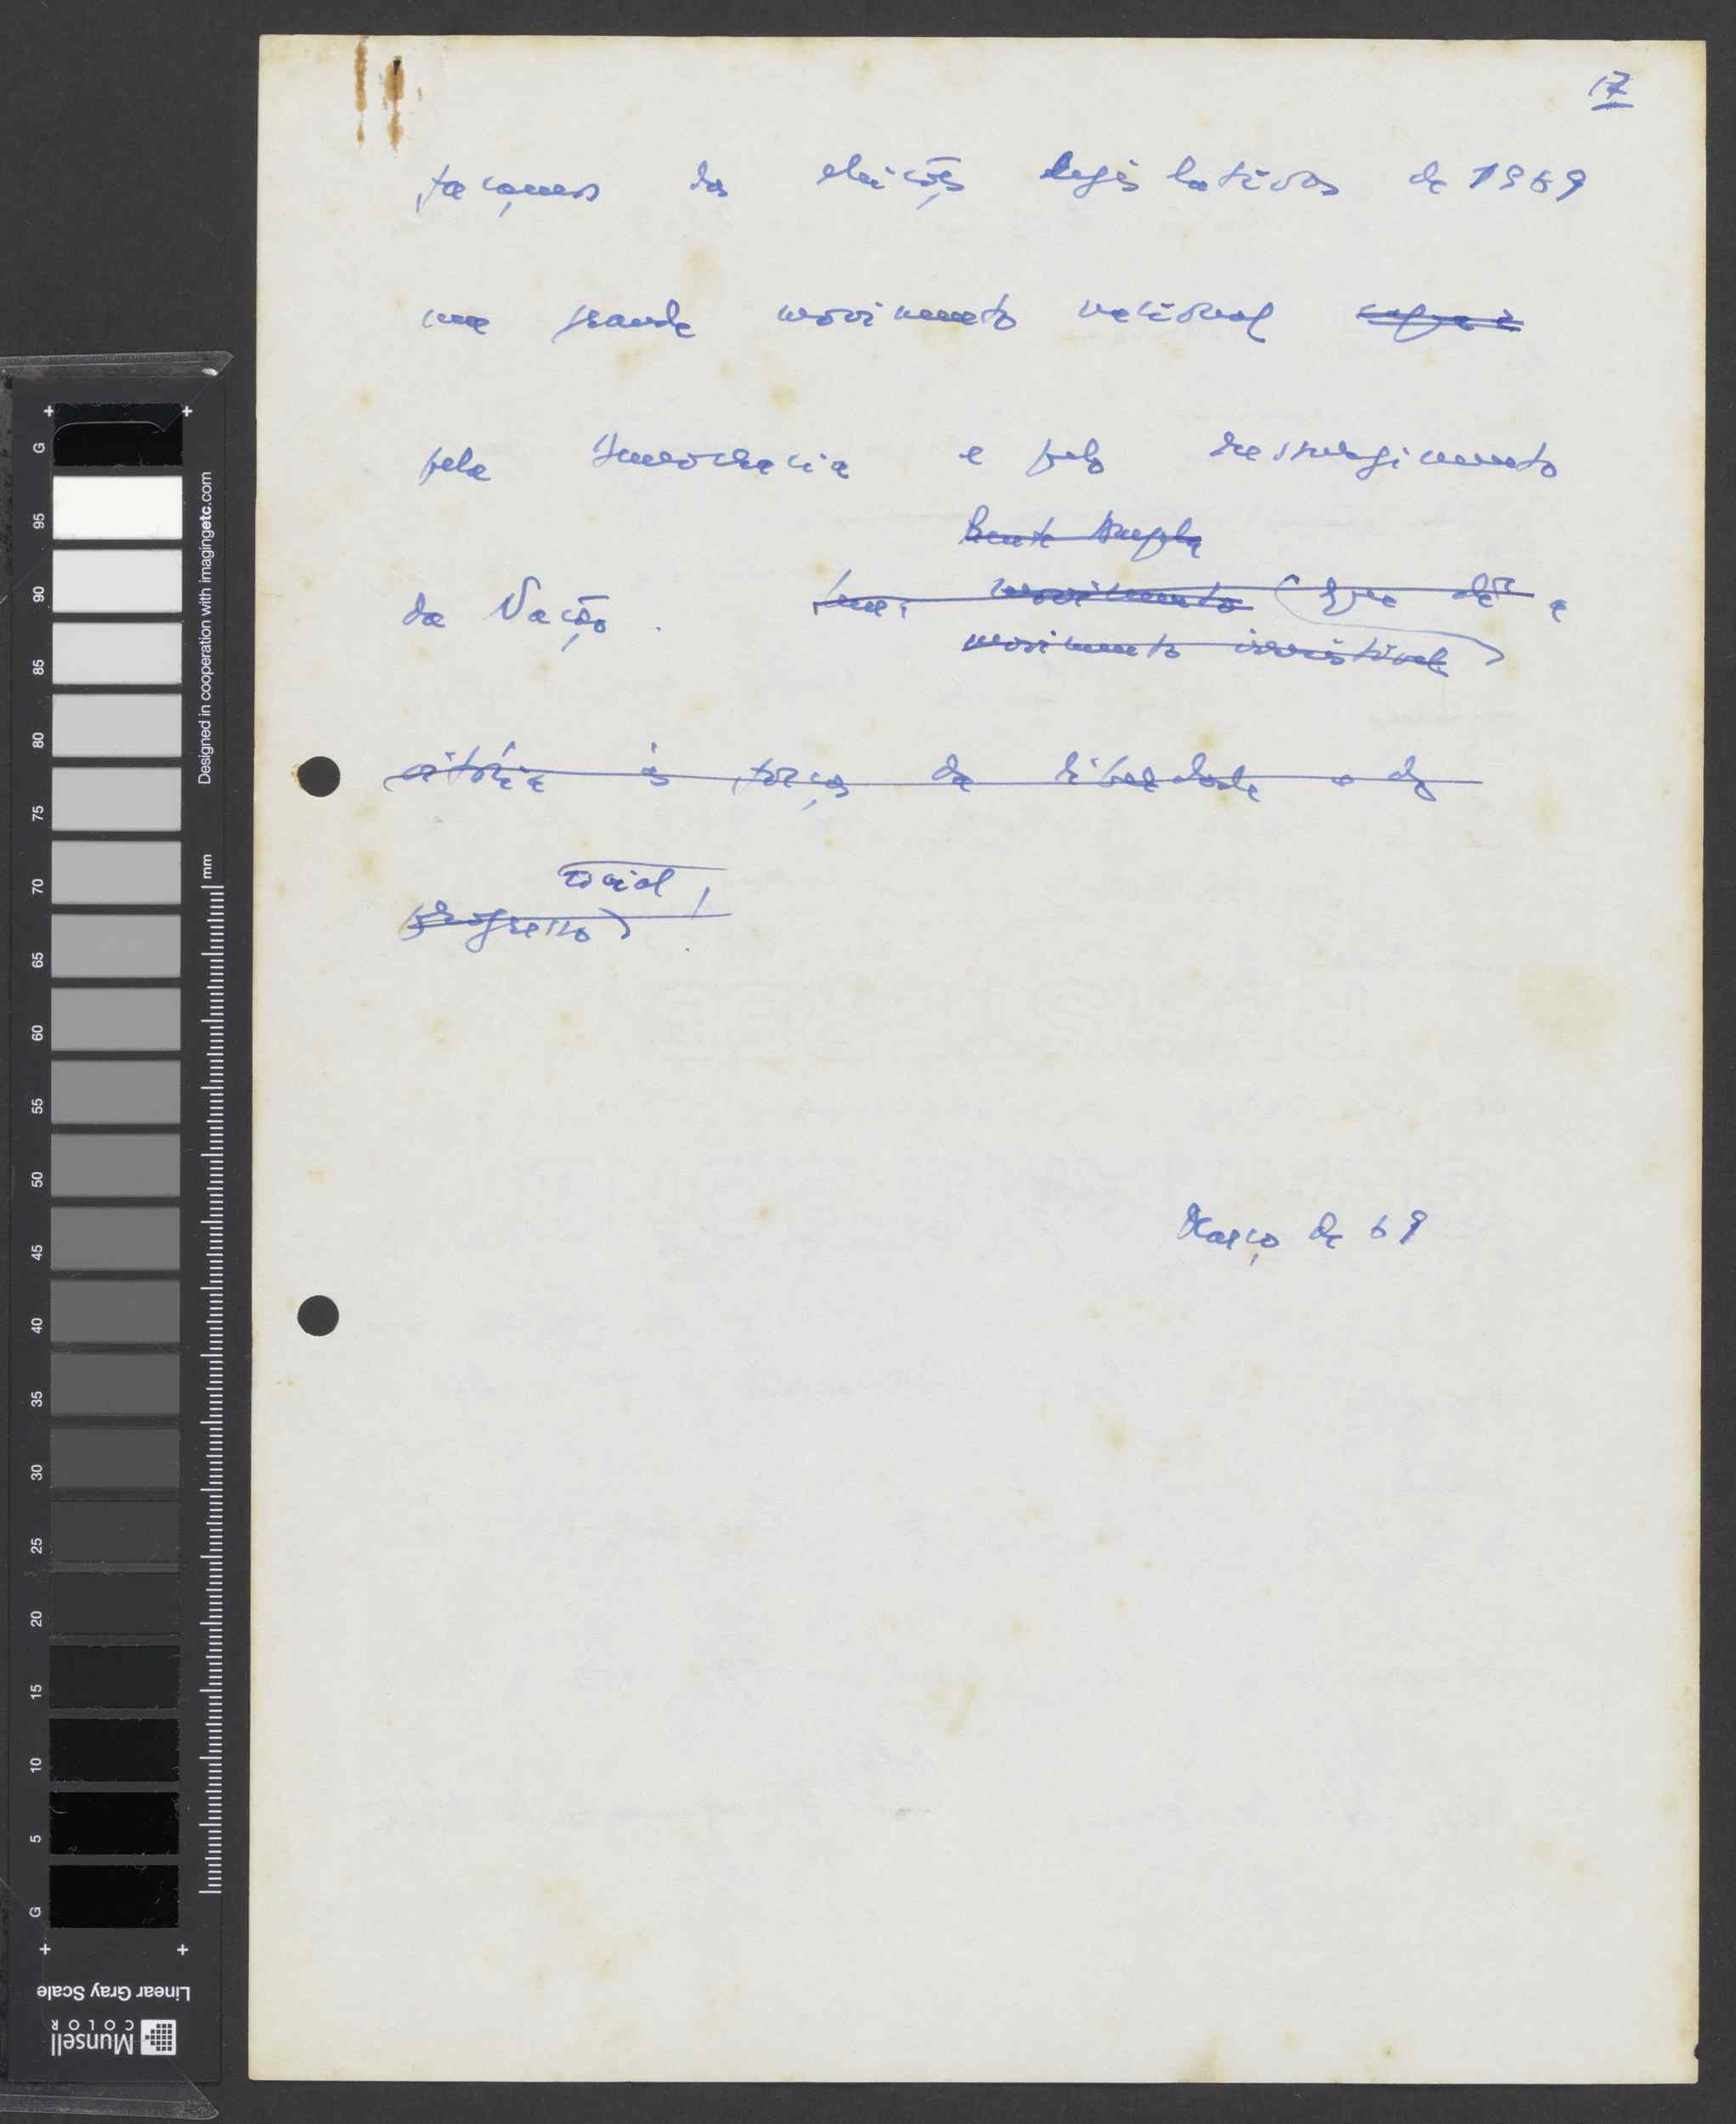 17
façamos das eleições legislativas de 1969
um grande movimento nacional
pela democracia e pelo ressurgimento
frente ampla
da Nação. Um movimento (que dê a
movimento irresistível)
vitória às forças da liberdade e do
social!
progresso)
Março de 69
G
95
90
85
80
75
70
65
60
55
50
45
40
35
30
25
20
15
10
5
G
mm
Designed in cooperation with imagingetc.com
Linear Gray Scale
Munsell
COLOR